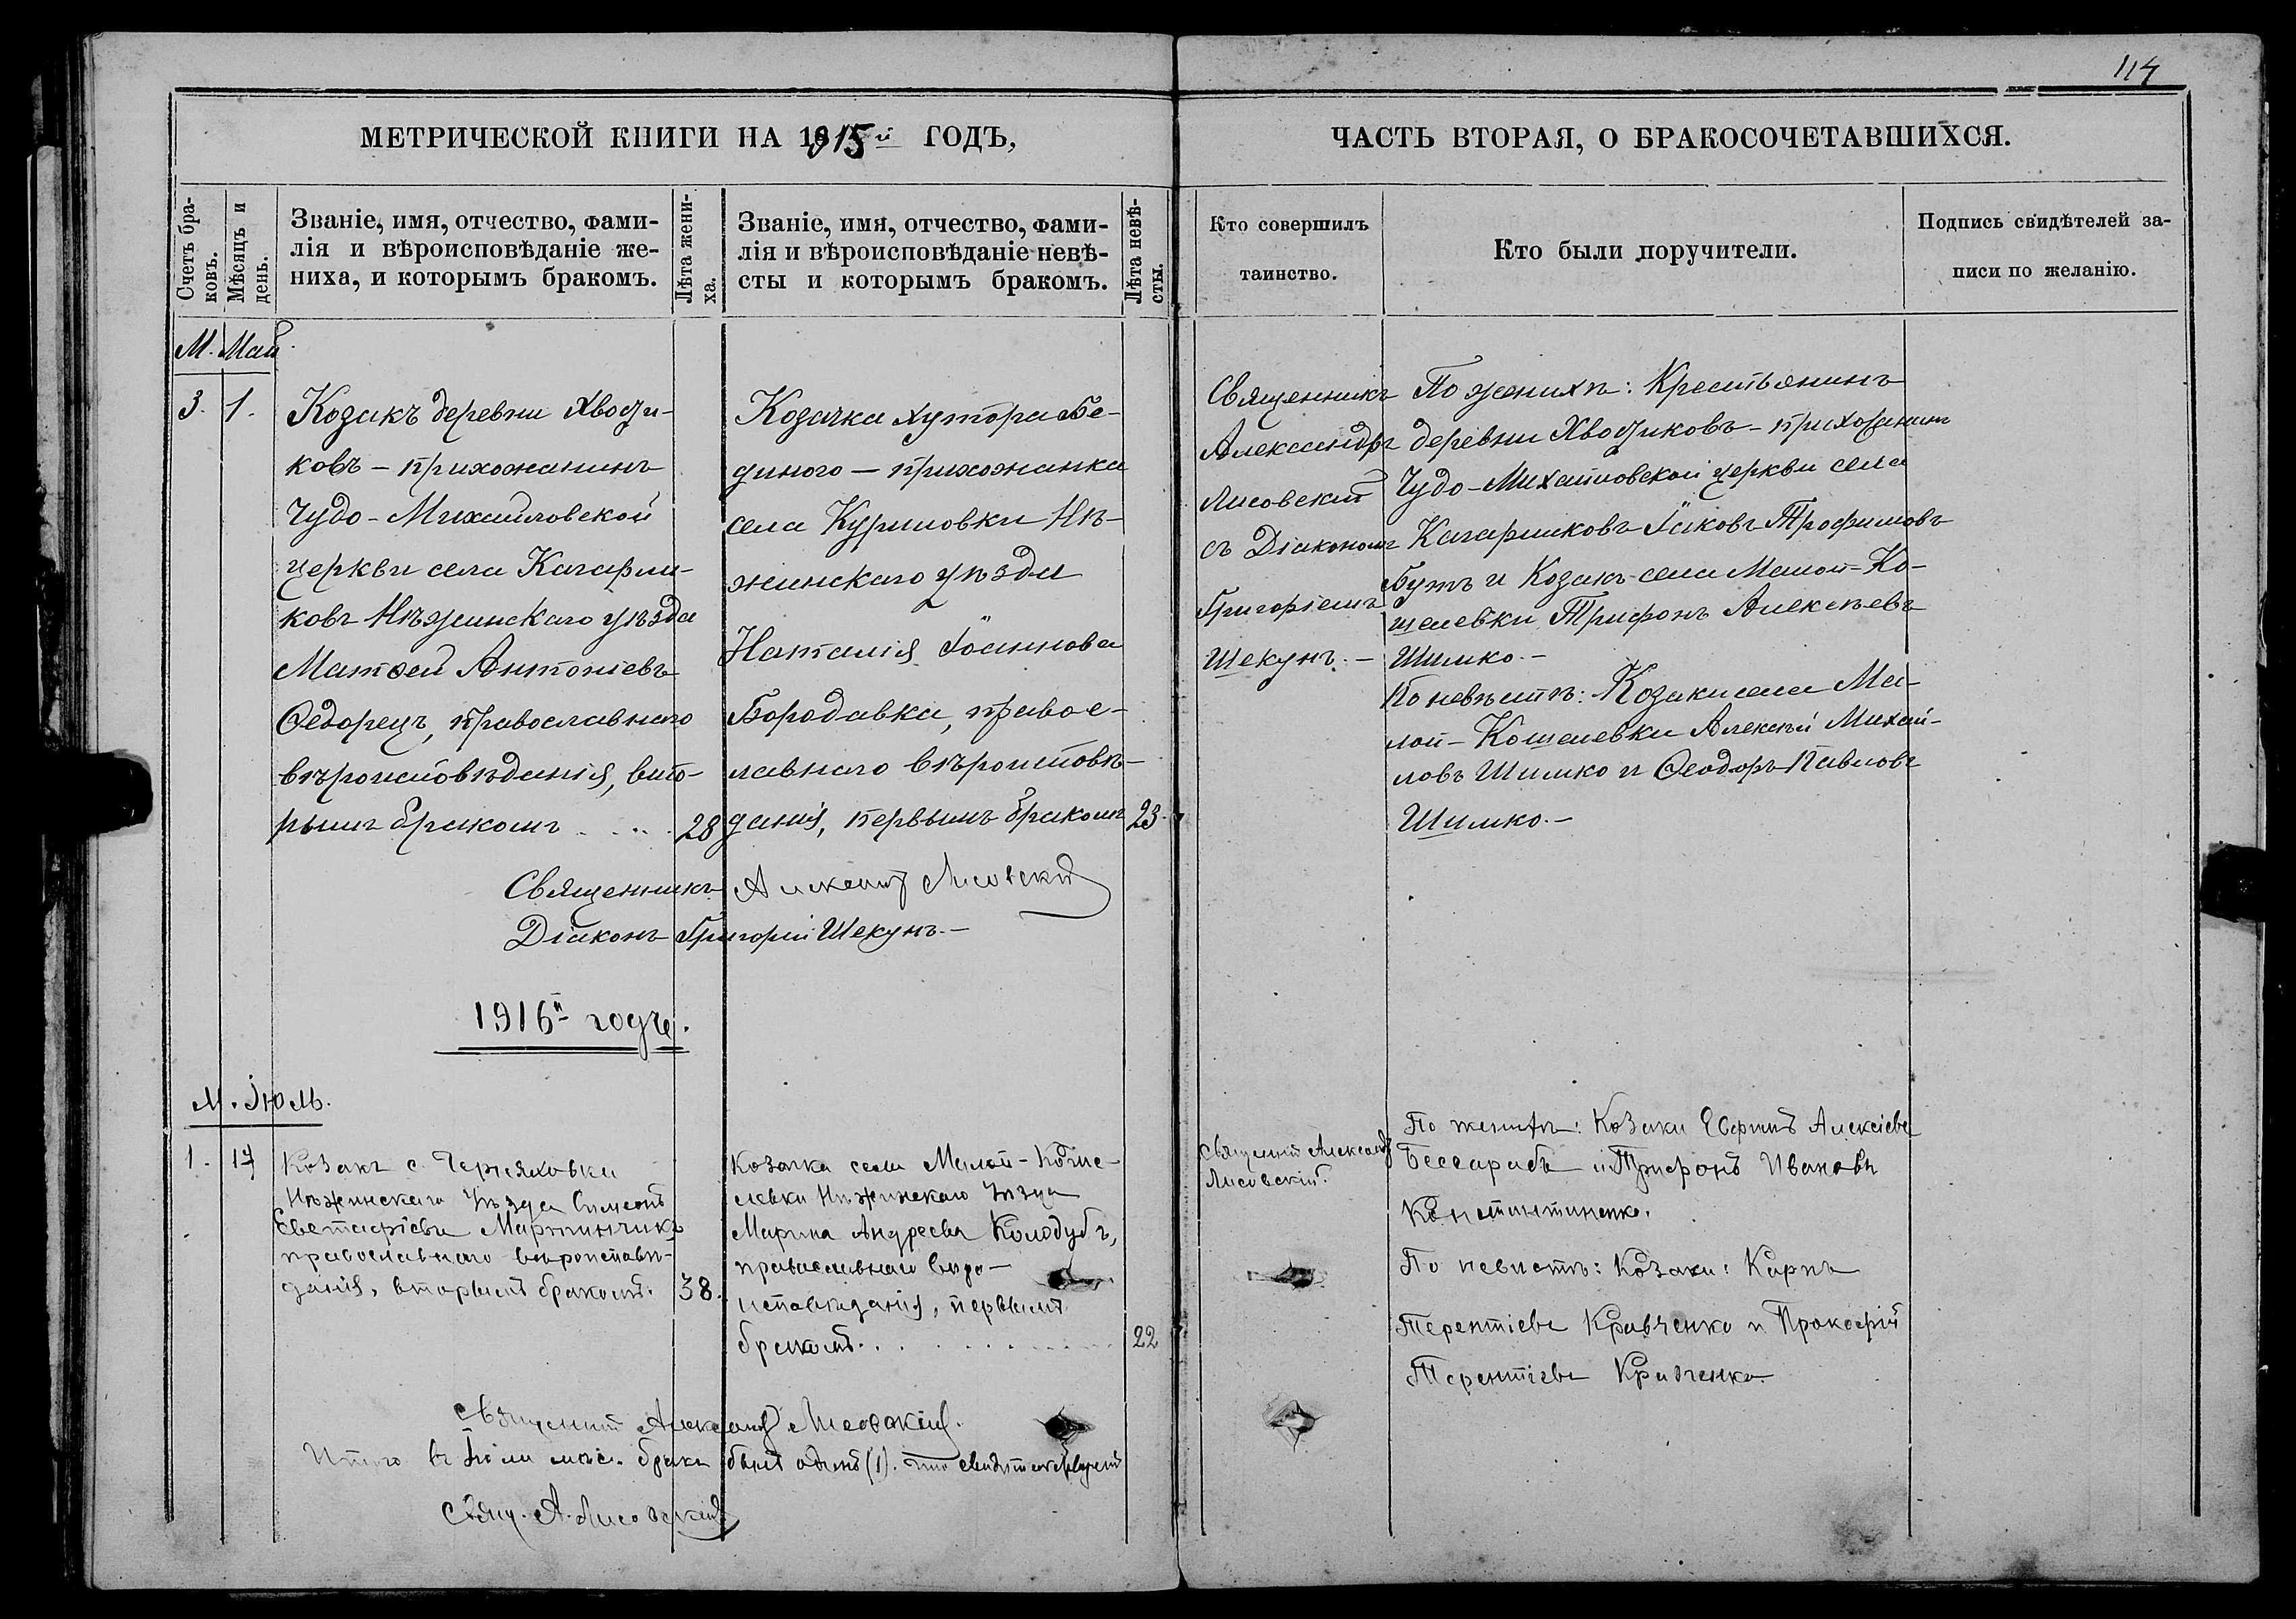 114
МЕТРИЧЕСКОЙ КНИГИ НА 1915й ГОДЪ,
ЧАСТЬ ВТОРАЯ, О БРАКОСОЧЕТАВШИХСЯ.
Счетъ бра-
ковъ.
Мѣсяцъ и
день.
Званіе, имя, отчество, фами-
лія и вѣроисповѣданіе же-
ниха, и которымъ бракомъ.
Лѣта жени-
ха.
Званіе, имя, отчество, фами-
лія и вѣроисповѣданіе невѣ-
сты и которымъ бракомъ.
Лѣта невѣ-
сты.
Кто совершилъ
таинство.
Кто были поручители.
Подпись свидѣтелей за-
писи по желанію.
М. Май
3. 1.
Козакъ деревни Хводи-
ковъ – прихожанинъ
Чудо-Михайловской
церкви села Кагарли-
ковъ Нѣжинскаго уѣзда
Матѳей Антоніевъ
Ѳедорецъ, православнаго
вѣроисповѣданія, вто-
рымъ бракомъ . . . .
28
Козачка хутора Бе-
диного – прихожанка
села Куриловки Нѣ-
жинскаго уѣзда
Наталія Іоаннова
Бородавка, правос-
лавнаго вѣроисповѣ-
данія, первымъ бракомъ
23.
Священникъ
Александръ
Лисовскій
съ Діакономъ
Григоріемъ
Шекунъ. –
По женихѣ: Крестьянинъ
деревни Хводиковъ – прихожанинъ
Чудо-Михайловской церкви села
Кагарликовъ Іаковъ Трофимовъ
Бутъ и Козакъ села Малой-Ко-
шелевки Трифонъ Алексѣевъ
Шимко. –
По невѣстѣ: Козаки села Ма-
лой-Кошелевки Алексѣй Михай-
ловъ Шимко и Ѳеодоръ Павловъ
Шимко. –
Священникъ Александръ Лисовскій
Діаконъ Григорій Шекунъ. –
1916й годъ.
М. Іюль.
1. 17
Козакъ с. Черняховки
Нѣжинскаго Уѣзда Симеонъ
Евстафіевъ Мартинчикъ
православнаго вѣроисповѣ-
данія, вторымъ бракомъ.
38.
Козачка села Малой-Коше-
левки Нѣжинскаго Уѣзда
Марина Андреева Колодубъ,
православнаго вѣро-
исповѣданія, первымъ
бракомъ. . . . . . . . . .
22
Священникъ Александръ
Лисовскій.
По женихѣ: Козаки Ефимъ Алексіевъ
Бессарабъ и Трифонъ Ивановъ
Константиненко.
По невѣстѣ: Козаки: Карпъ
Терентіевъ Кравченко и Прокофій
Терентіевъ Кравченко.
Священникъ Александръ Лисовскій.
Итого въ Іюлѣ мѣс. бракъ былъ одинъ (1). что свидѣтельствуетъ
Свящ. А. Лисовскій